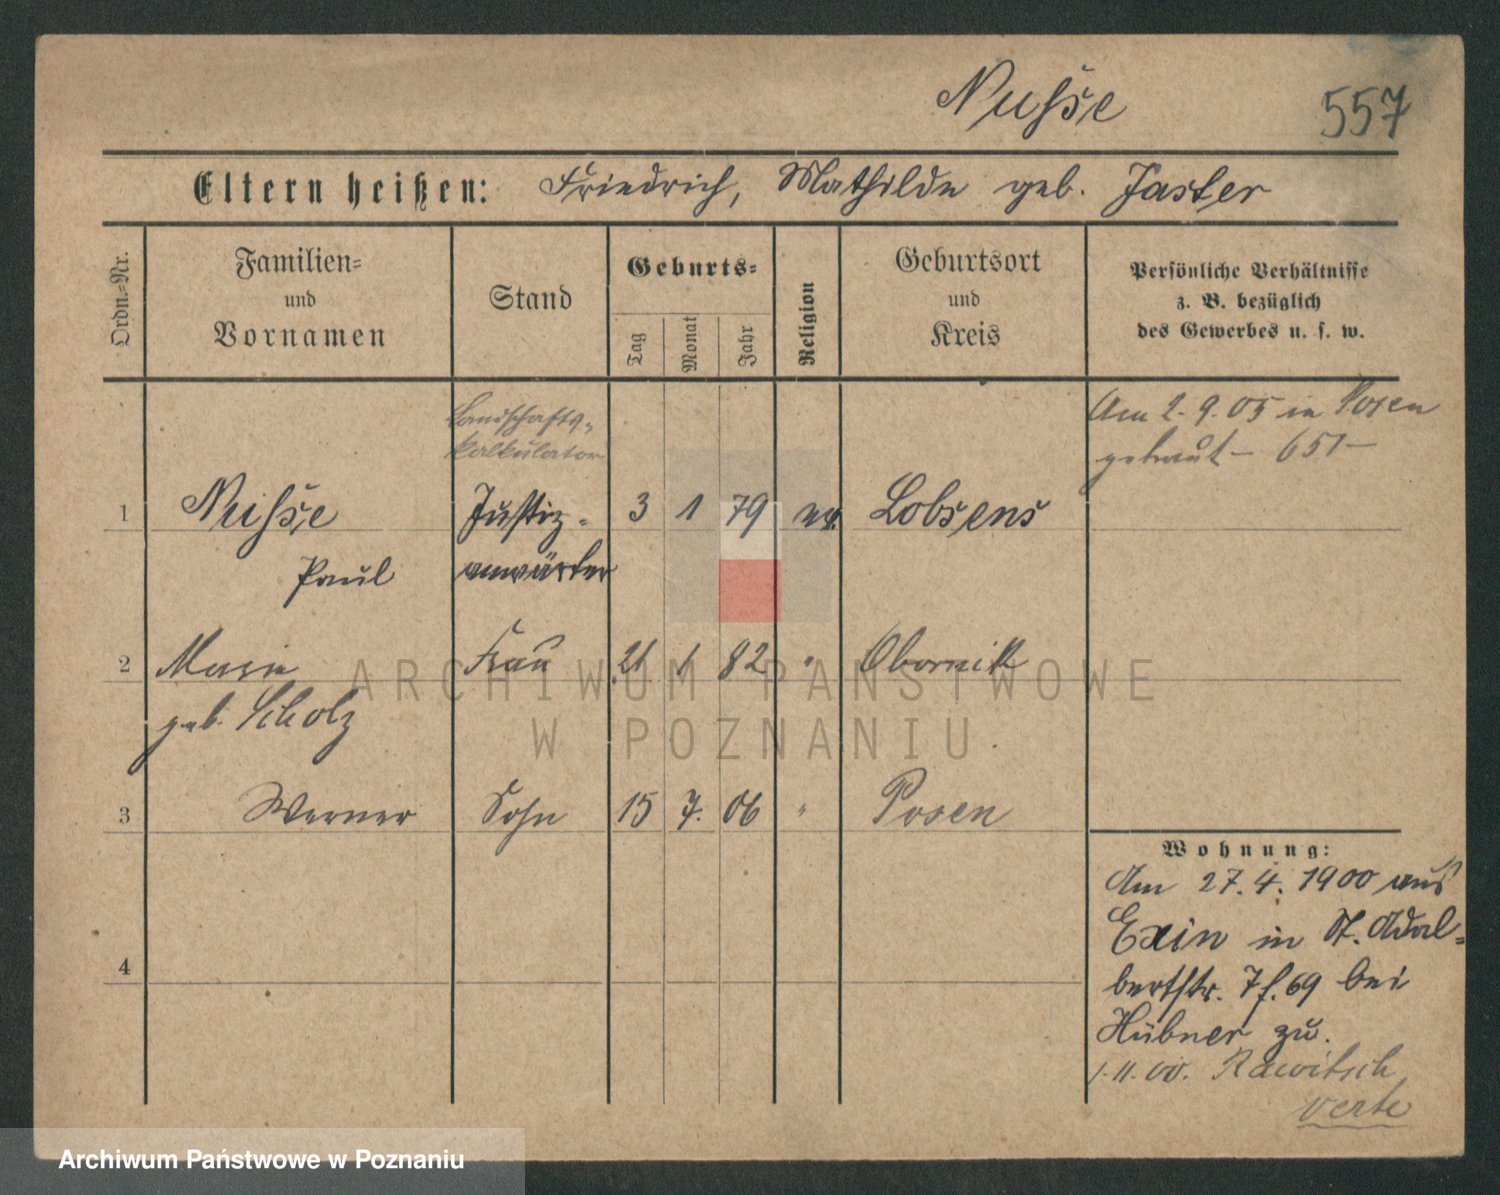 Nusse
557
Eltern heißen: Friedrich, Mathilde geb. Jaster
Ordn.-Nr.
Familien-
und
Vornamen
Stand
Geburts-
Tag
Monat
Jahr
Religion
Geburtsort
und
Kreis
Persönliche Verhältnisse
z. B. bezüglich
des Gewerbes u. s. w.
Am 2. 9. 05 in Posen
getraut – 651 –
Landschafts-
kalkulator
1 Justiz- 3 1 79 ev. Lobsens
Paul anwärter
2 Marie Frau 21 1 82 " Obornik
geb. Scholz
3 Werner Sohn 15 7. 06 " Posen
4
Wohnung:
Am 27. 4. 1900 aus
Exin in St. Adal-
bertstr. 7 f. 69 bei
Hübner zu.
1. 11. 00. Rawitsch
verte
ARCHIWUM PAŃSTWOWE
W POZNANIU
Archiwum Państwowe w Poznaniu